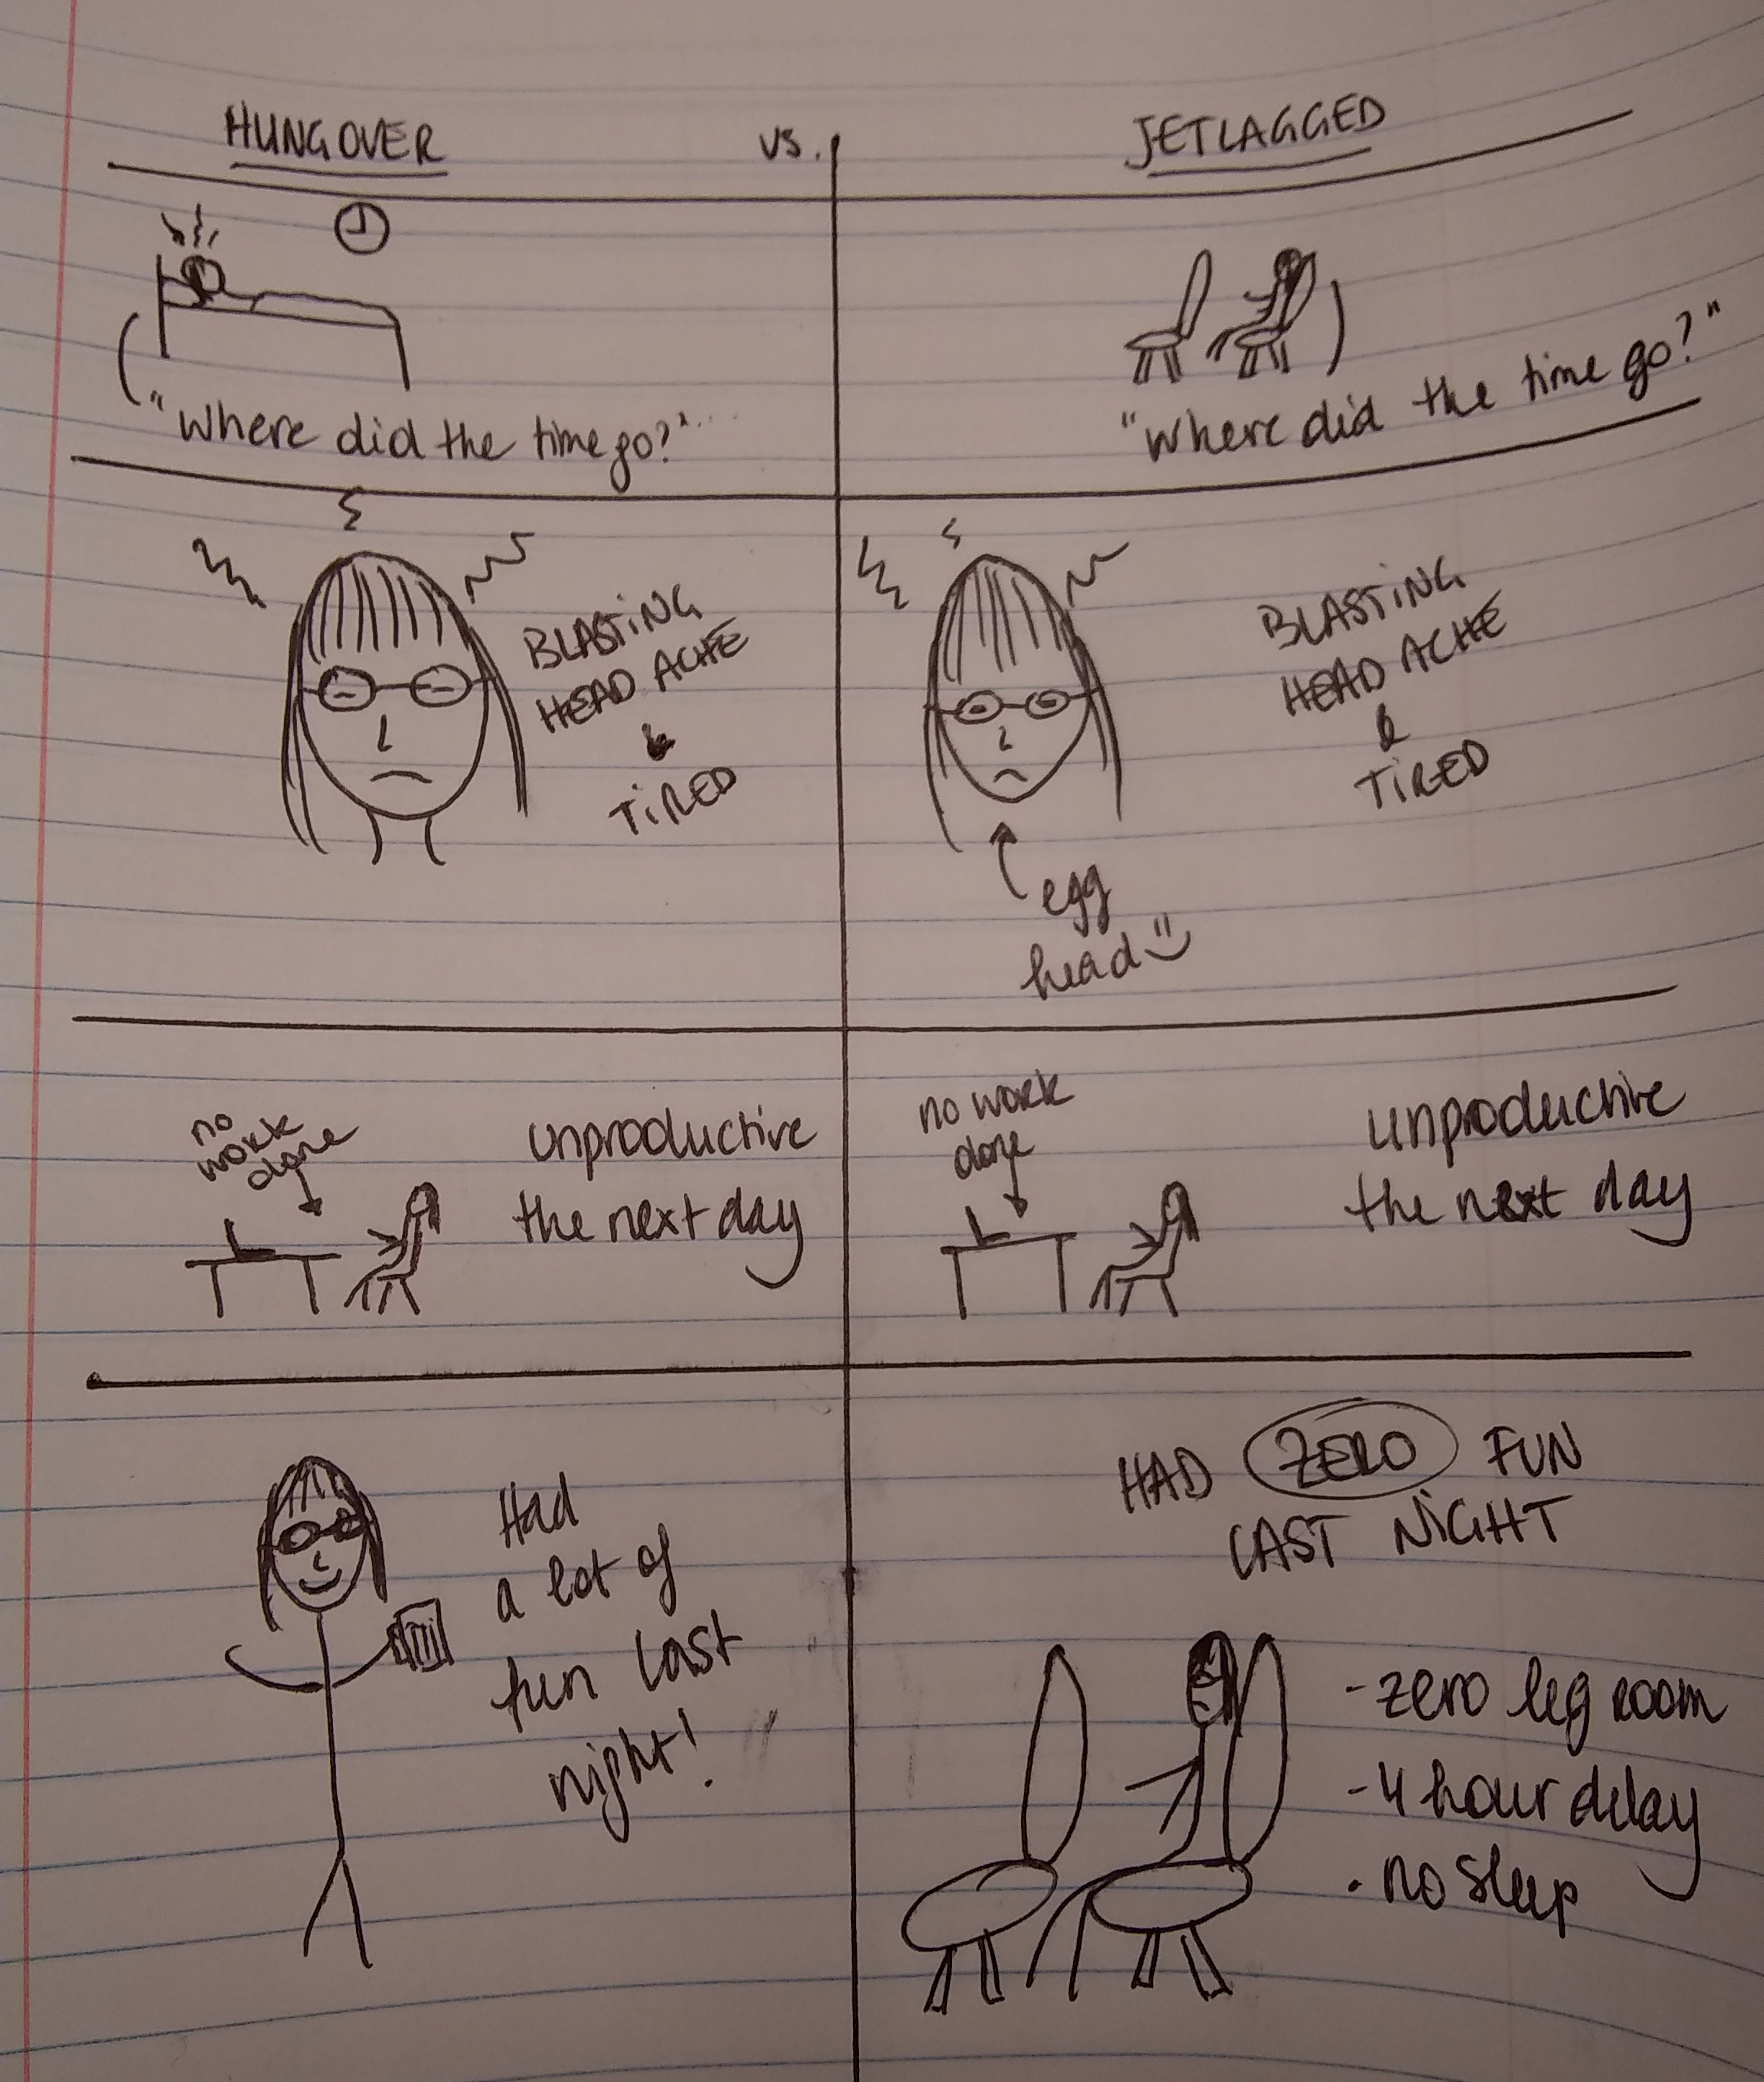 HUNGOVER vs. JETLAGGED
"Where did the time go?"...
"Where did the time go?"
BLASTING
HEAD ACHE
&
TIRED
BLASTING
HEAD ACHE
&
TIRED
egg
head
no
work
done
unproductive
the next day
no work
done
unproductive
the next day
Had
a lot of
fun last
night!
HAD ZERO FUN
LAST NIGHT
-zero leg room
-4 hour delay
. no sleep